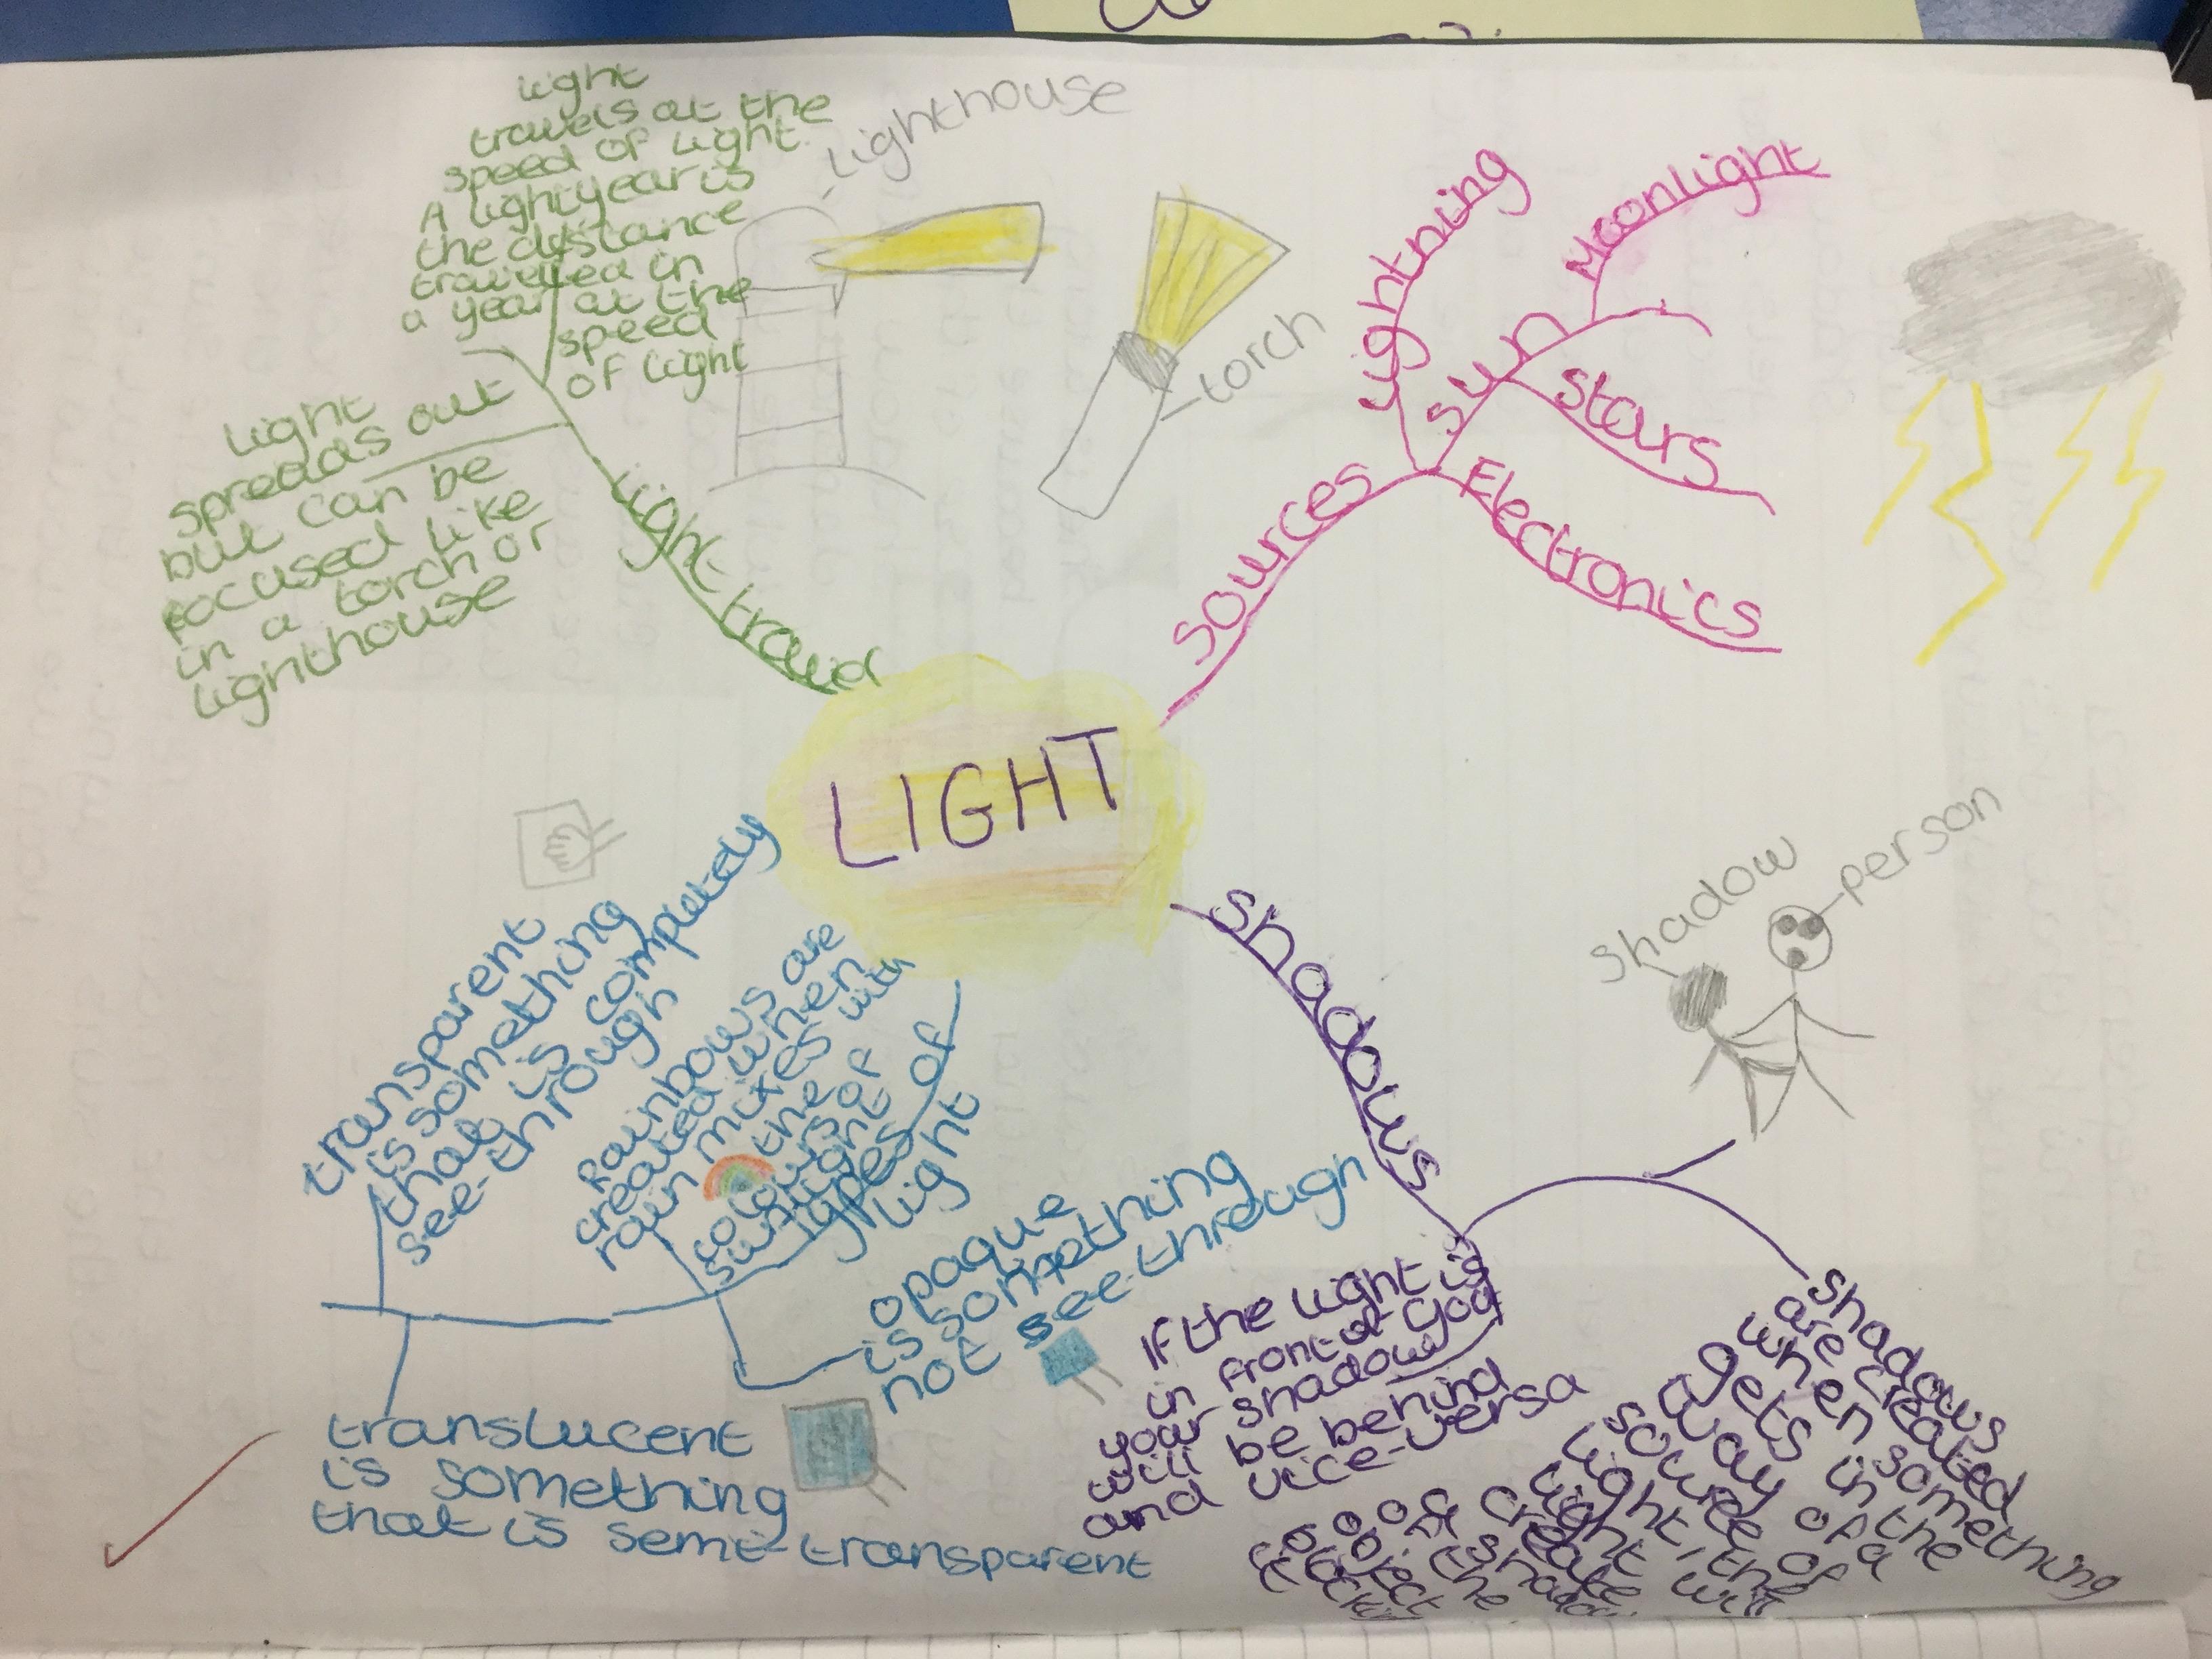 LIGHT
Light travel
Light
travels at the
speed of light.
A lightyear is
the distance
travelled in
a year at the
speed
of light
Light
spreads out
but can be
focused like
in a torch or
lighthouse
Lighthouse
torch
Sources
Lightning
Sun
Moonlight
Stars
Electronics
Shadow
person
Shadows
If the light is
in front of you
your shadow
will be behind
and vice-versa
Shadows
are created
when something
gets in the
way of a
source of
light, the
light will
create
a shadow
of the
object
types of
light
Rainbows are
created when
rain mixes with
the
colours of
sunlight
transparent
is something
that is completely
see-through
opaque
is something
not see-through
translucent
is something
that is semi-transparent